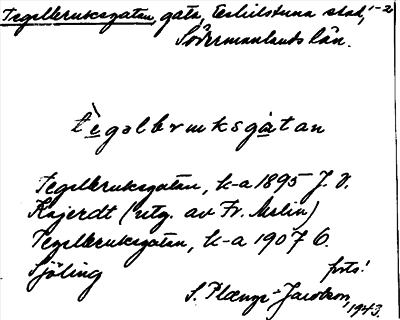 Tegelbruksgatan, gata, Eskilstuna stad, 1-2
Södermanlands län.
tègəlbrʉksgàtan
Tegelbruksgatan, k-a 1895 J. V.
Kajerdt (utg. av Fr. Melin)
Tegelbruksgatan, k-a 1907 C.
Sjöling
forts!
S. Plænge-Jacobson, 1943.